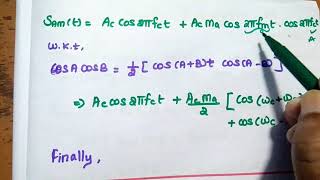 S_AM(t) = Ac cos 2πfct + Ac Ma cos 2πfmt . cos 2πfct
A
W.K.T,
cosA cosB = 1/2 [ cos(A+B)t cos(A-B)
⇒ Ac cos 2πfct + AcMa/2 [ cos(ωc+ω
+ cos(ωc -
Finally,